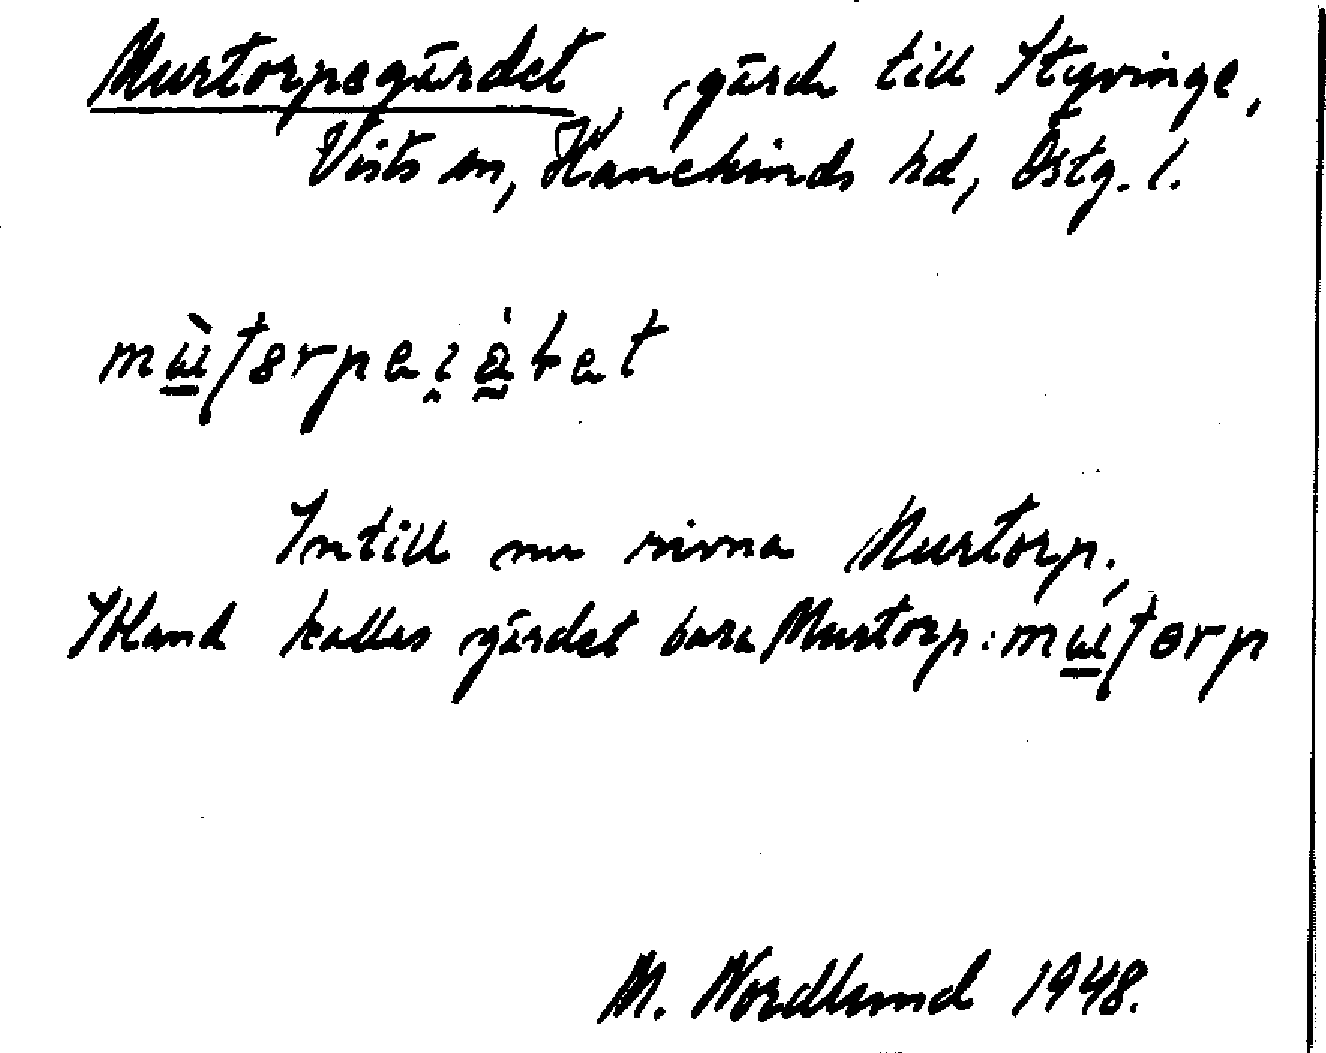 Murtorpsgärdet, gärde till Styvinge,
Vists sn, Hanekinds hd, Östg. l.
Intill nu rivna Murtorp.
Ibland kallas gärdet bara Murtorp:
M. Nordlund 1948.